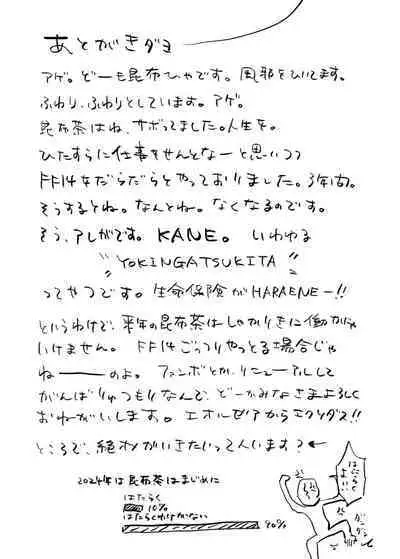 あとがきダヨ
アゲ。どーも昆布ひゃです。風邪をひいてます。
ふわり、ふわりとしています。アゲ。
昆布茶はね、サボってました。人生を。
ひたすらに仕事をせんとなーと思いつつ
FF14をだらだらとやっておりました。3年間。
そうするとね。なんとね。なくなるのです。
そう、アレがです。KANE。いわゆる
"YOKINGATSUKITA"
ってやつです。生命保険がHARAENEー!!
というわけで、来年の昆布茶はしゃかりきに働かにゃ
いけません。FF14ごっつりやっとる場合じゃ
ねーーーのよ。ファンボとか、リニューアルして
がんばりゅつもりなんで、どーかみなさまよろしく
おねがいします。エオルゼアからエクソダス!!
ところで、絶オメガいきたいって人います?←
はたらくよ!!
2024年は昆布茶はまじめに
はたらく
10%
はたらくわけがない
90%